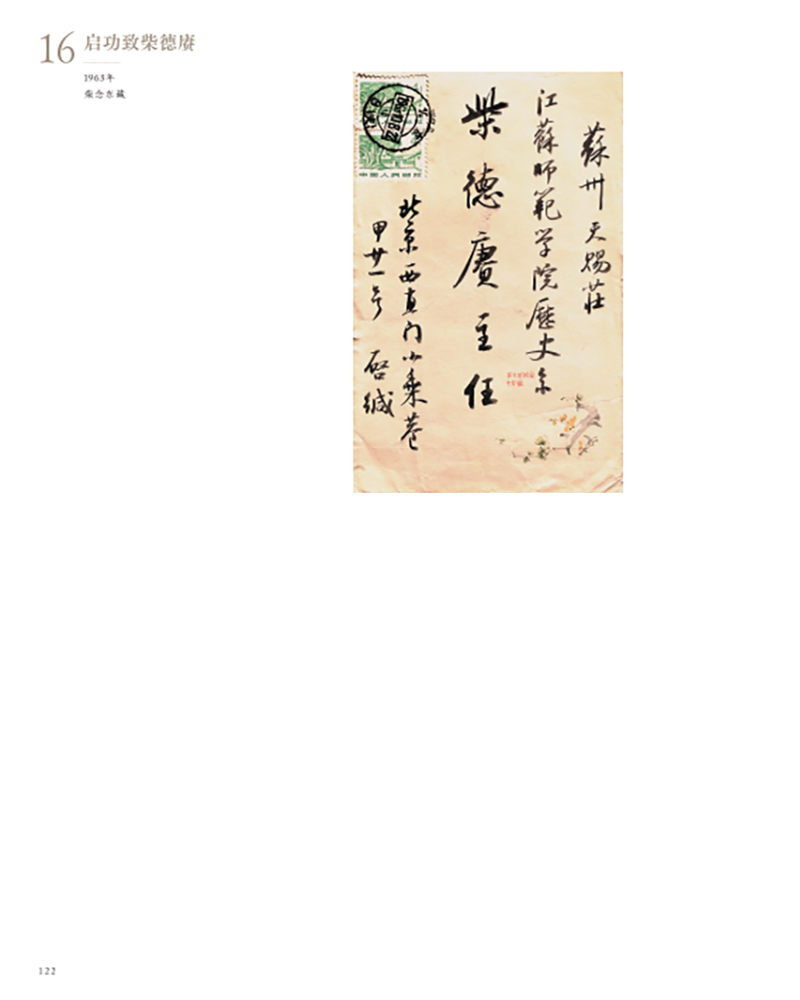 16 启功致柴德赓
1963年
柴念东藏
蘇州天賜莊
江蘇師範学院歷史系
柴德賡主任
北京西直门小乘巷
甲廿一号 啓缄
中国人民邮政
122